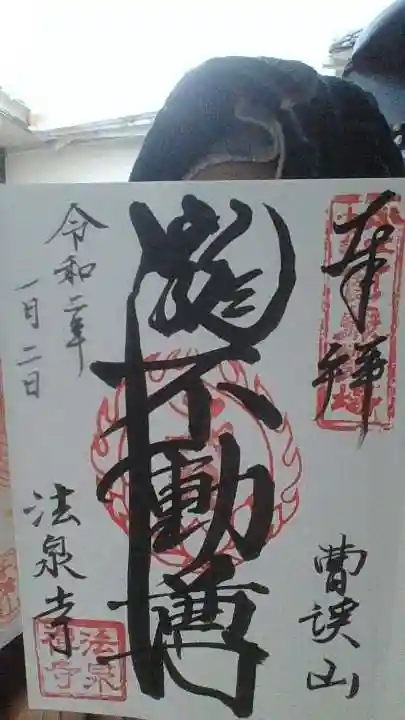 奉拝
曹渓山
不動尊
令和二年
一月二日
法泉寺
法泉
禅寺